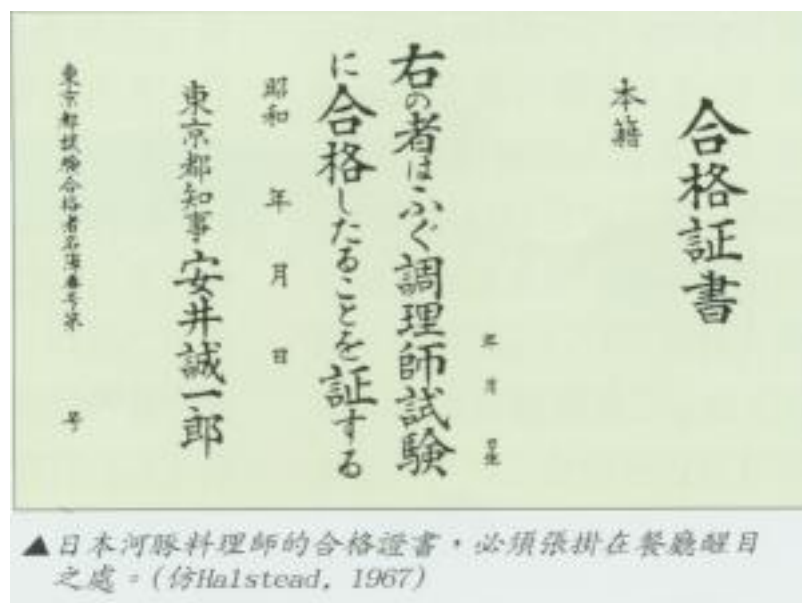 合格証書
本籍
年 月 日生
右の者はふぐ調理師試験
に合格したることを証する
昭和 年 月 日
東京都知事安井誠一郎
東京都試験合格者名簿番号第 号
▲日本河豚料理師的合格證書,必須張掛在餐廳醒目
之處。(仿Halstead, 1967)